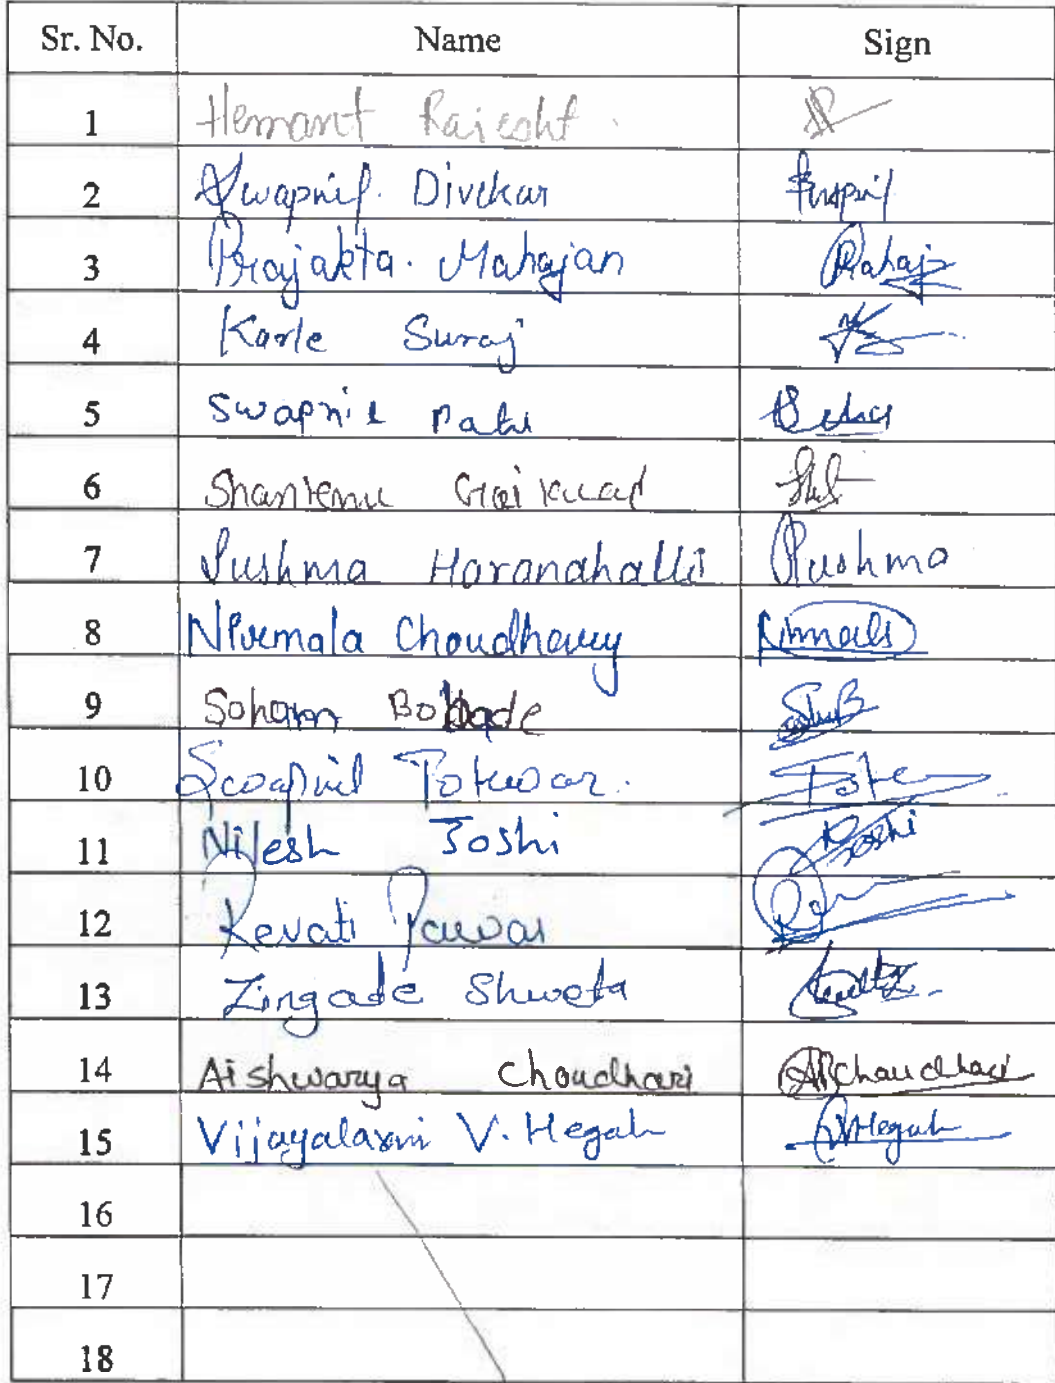 Sr. No. Name Sign
1 Hemant
2 Swapnil. Divekar Swapnil
3 Prajakta. Mahajan
4 Karle Suraj
5 Swapnil Patil
6 Shantenu Gaikwad
7 Sushma Haranahalli Sushma
8 Nirmala Choudhary
9 Soham Bobade
10 Swapnil Potwar.
11 Nilesh Joshi Joshi
12 Revati Pawar
13 Zingade Shweta
14 Aishwarya Choudhari AChaudhari
15 Vijayalaxmi V. Hegde
16
17
18